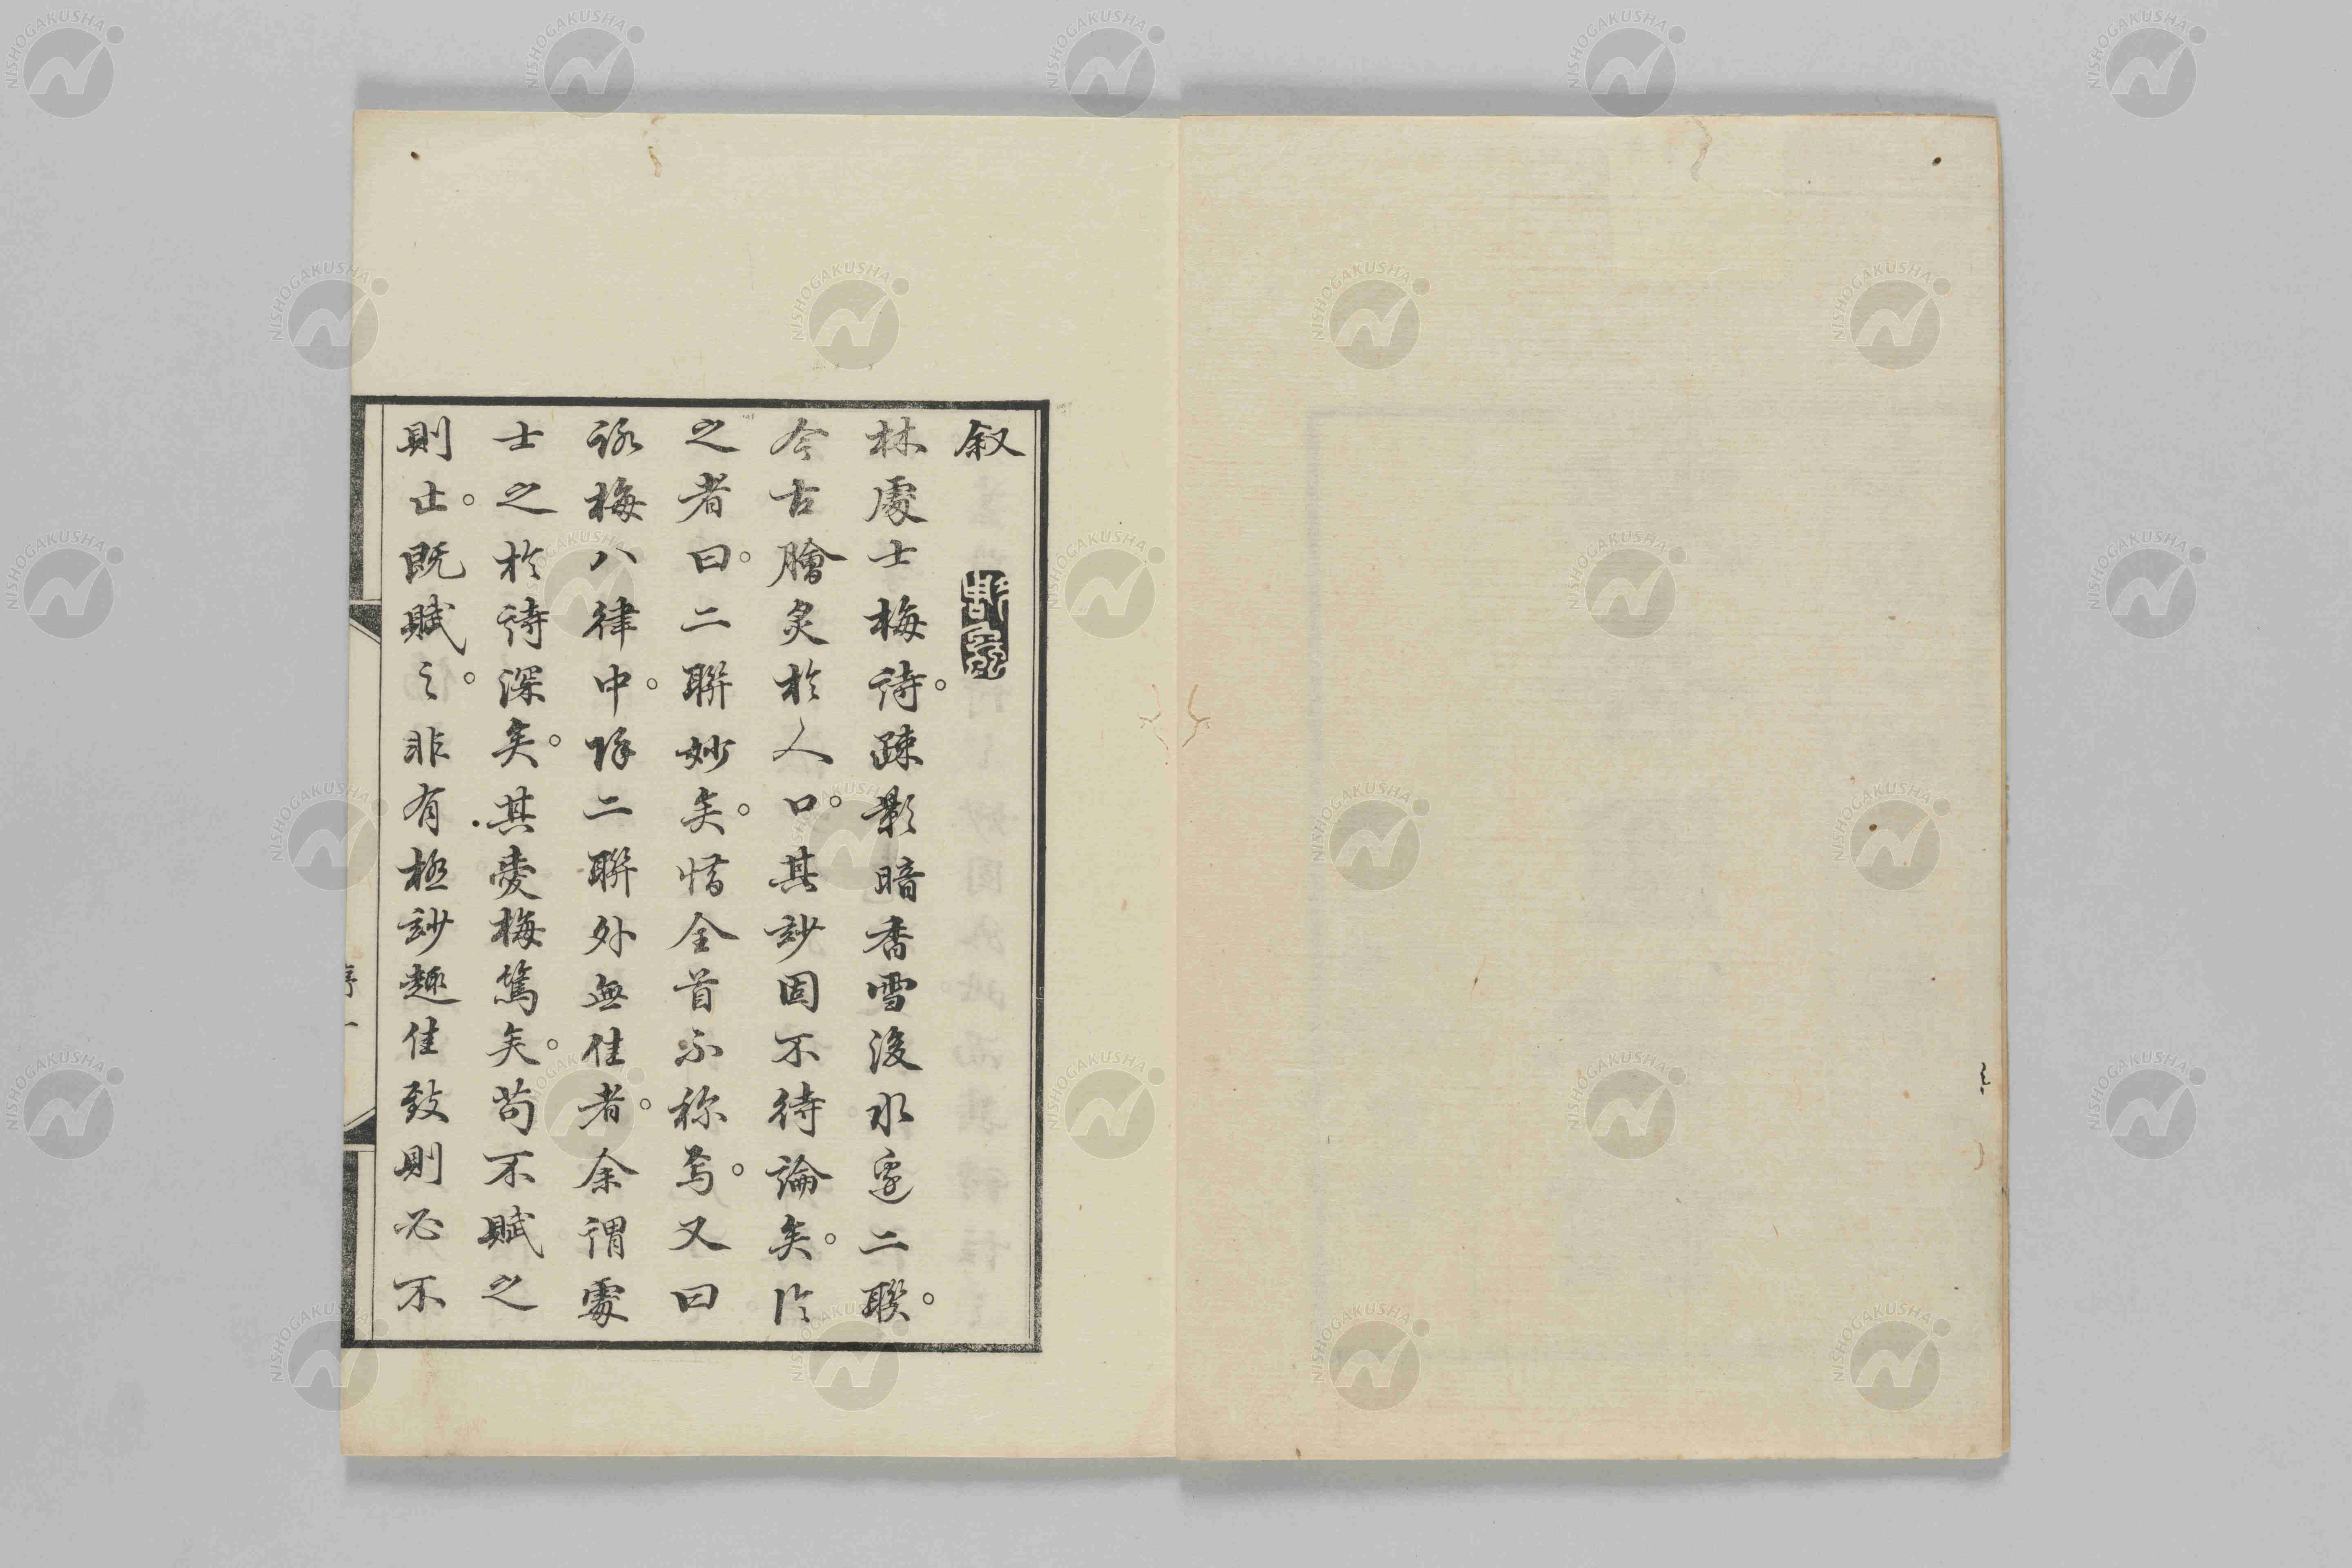 叙
林處士梅詩。疎影暗香雪後水邊二聯。
今古膾炙於人口。其妙固不待論矣。
之者曰。二聯妙矣。惜全首不称焉。又曰
詠梅八律中。除二聯外無佳者。余謂處
士之於詩深矣。其愛梅篤矣。苟不賦之
則止。既賦之。非有極妙趣佳致則必不
序 一
NISHOGAKUSHA